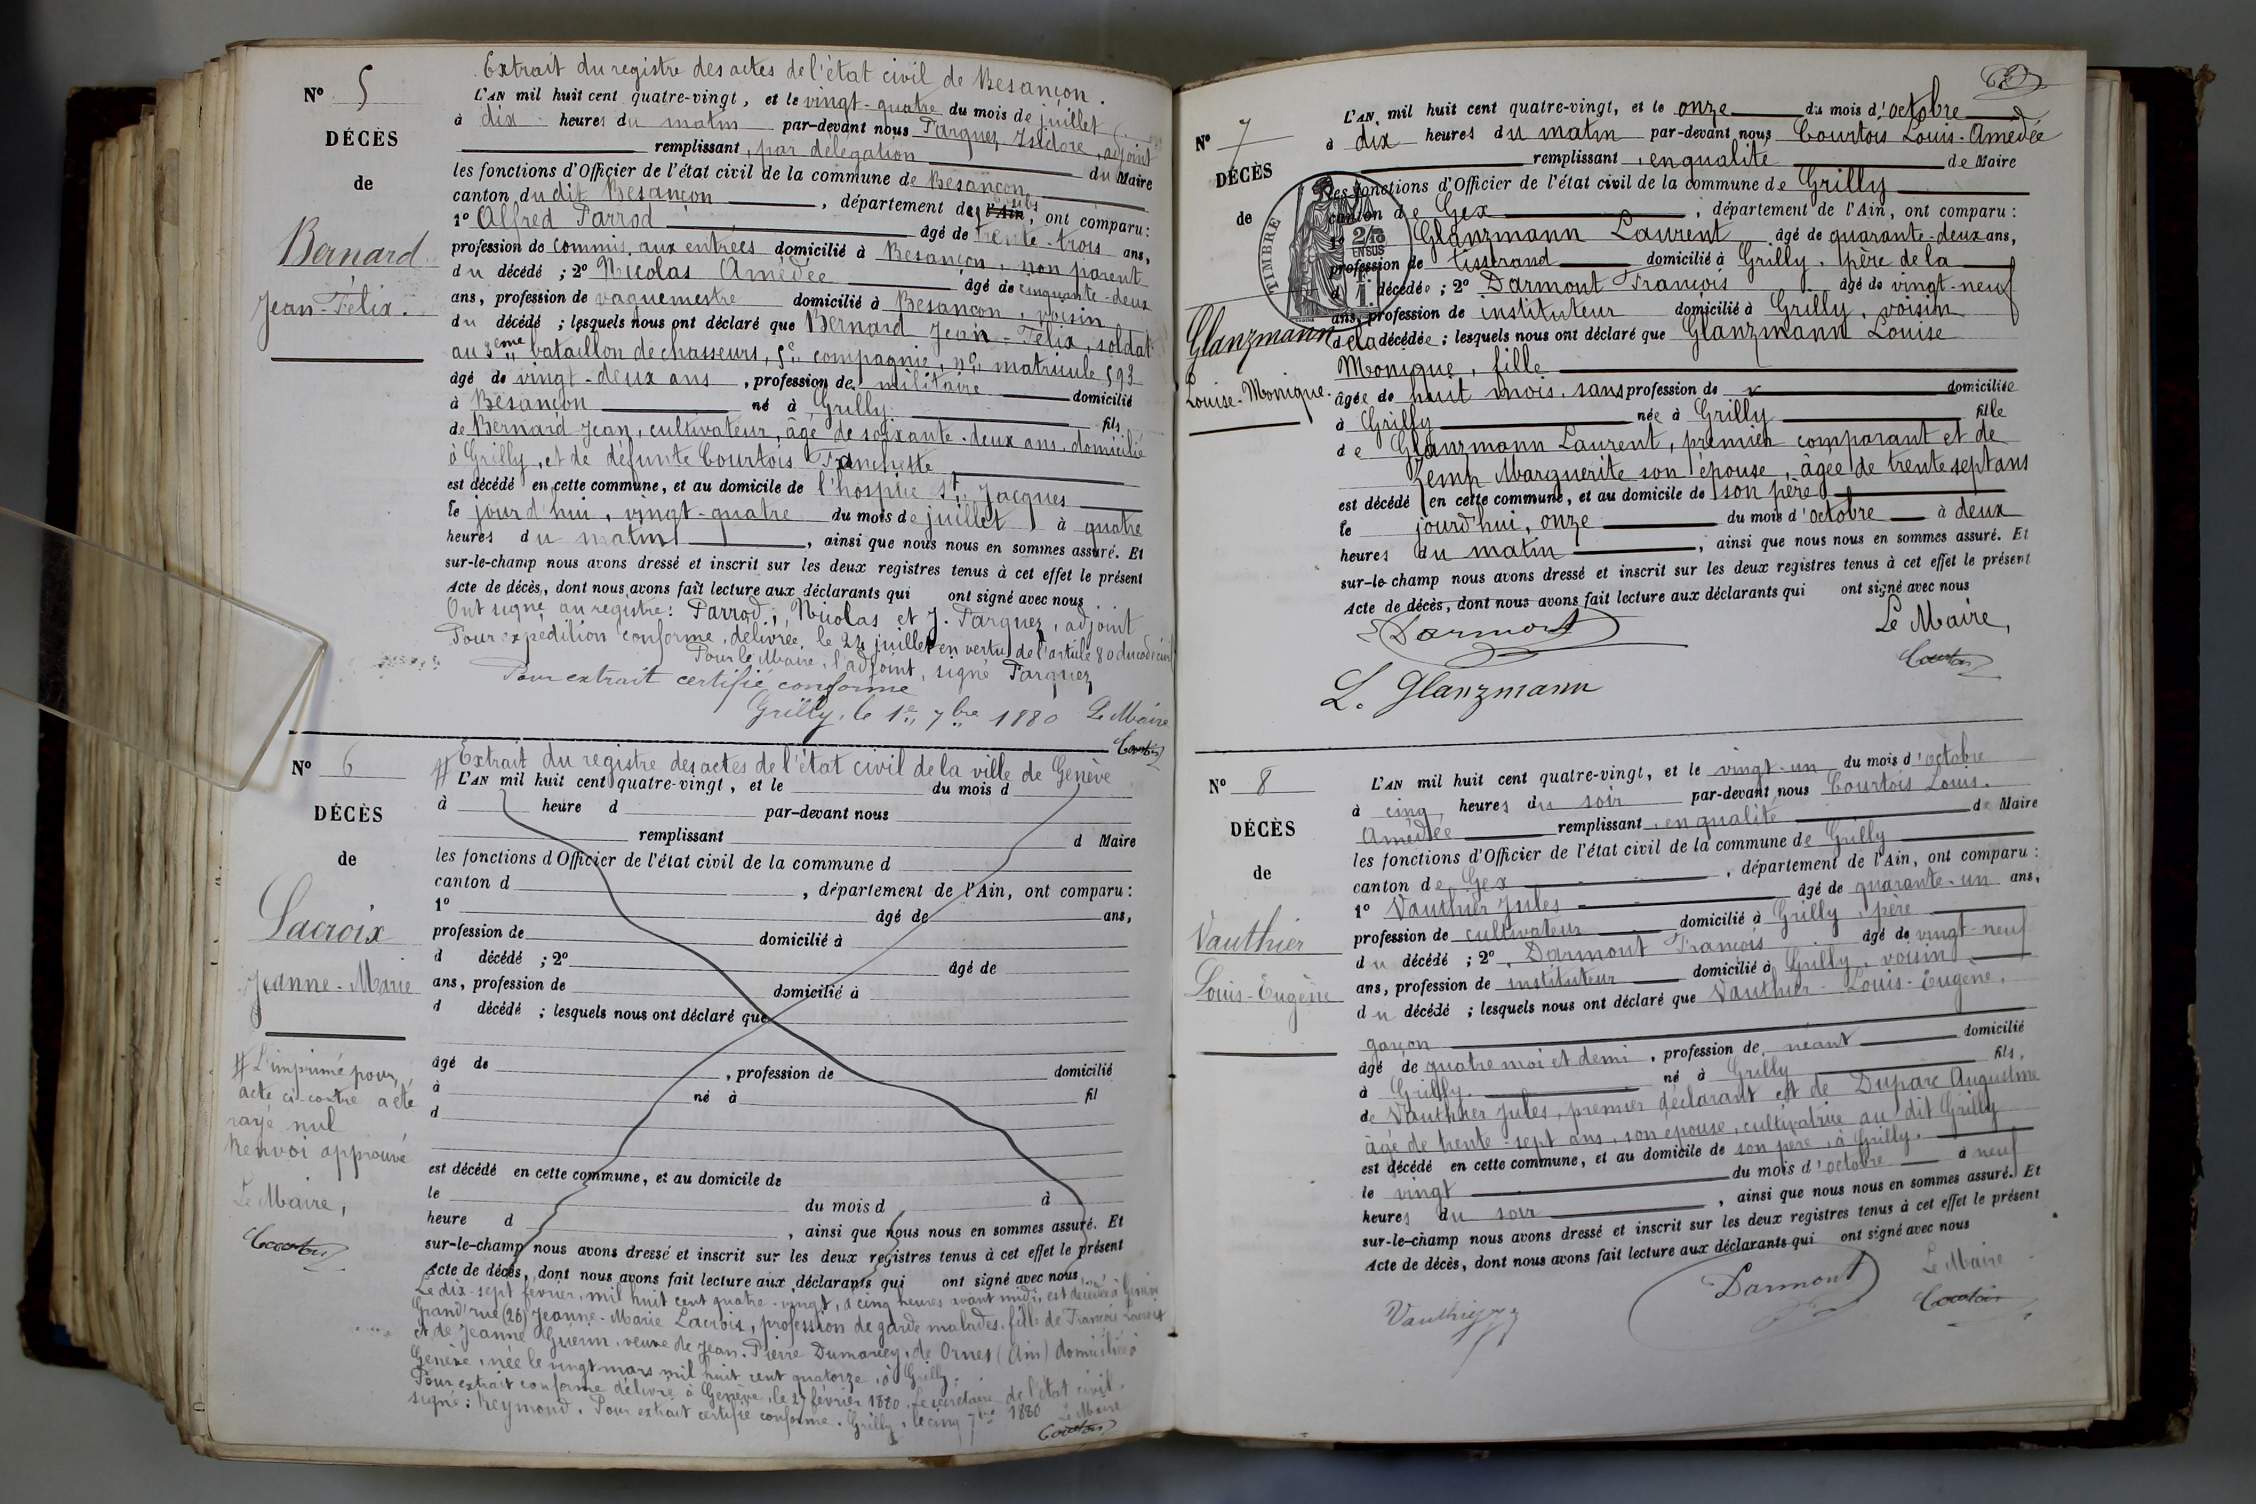 Extrait du registre des actes de l'état civil de Besançon.
N° 5
L'AN mil huit cent quatre-vingt, et le vingt-quatre du mois de juillet
à dix heures du matin par-devant nous Farguez Isidore, adjoint
DÉCÈS
remplissant, par délégation du Maire
de
les fonctions d'Officier de l'état civil de la commune de Besançon
canton du dit Besançon, département de l'Ain, ont comparu:
Bernard
Jean-Félix.
1° Alfred Parrod âgé de trente-trois ans,
profession de commis aux entrées domicilié à Besançon, non parent
du décédé ; 2° Nicolas Amédée âgé de cinquante-deux
ans, profession de vaguemestre domicilié à Besançon, voisin
du décédé ; lesquels nous ont déclaré que Bernard Jean-Félix, soldat
au 3eme bataillon de chasseurs, 5e compagnie, n° matricule 593
âgé de vingt-deux ans, profession de militaire domicilié
à Besançon né à Grilly fils
de Bernard Jean, cultivateur, âgé de soixante-deux ans, domicilié
à Grilly, et de défunte Courtois Franchette
est décédé en cette commune, et au domicile de l'hospice St Jacques
le jourd'hui, vingt-quatre du mois de juillet à quatre
heures du matin, ainsi que nous nous en sommes assuré. Et
sur-le-champ nous avons dressé et inscrit sur les deux registres tenus à cet effet le présent
Acte de décès, dont nous avons fait lecture aux déclarants qui ont signé avec nous
Ont signé au registre: Parrod; Nicolas et J. Farguez, adjoint
Pour expédition conforme, délivrée le 24 juillet en vertu de l'article 80 du code civil
Pour le Maire, l'adjoint, signé Farguez
Pour extrait certifié conforme
Grilly, le 1er 7bre 1880 Le Maire
Courtois
N° 6
# Extrait du registre des actes de l'état civil de la ville de Genève
L'AN mil huit cent quatre-vingt, et le du mois d
à heure d par-devant nous
DÉCÈS
remplissant d Maire
de
les fonctions d'Officier de l'état civil de la commune d
canton d , département de l'Ain, ont comparu:
Lacroix
Jeanne-Marie
1° âgé de ans,
profession de domicilié à
d décédé ; 2° âgé de
ans, profession de domicilié à
d décédé ; lesquels nous ont déclaré que
âgé de , profession de domicilié
à né à fil
d
est décédé en cette commune, et au domicile de
le du mois d à
heure d , ainsi que nous nous en sommes assuré. Et
sur-le-champ nous avons dressé et inscrit sur les deux registres tenus à cet effet le présent
Acte de décès, dont nous avons fait lecture aux déclarants qui ont signé avec nous
# L'imprimé pour
acte ci-contre a été
rayé nul
Renvoi approuvé
Le Maire,
Courtois
Le dix-sept février, mil huit cent quatre-vingt, à cinq heures avant midi, est décédée à Genève
Grand'rue (26) Jeanne-Marie Lacroix, profession de garde malades, fille de François Lacroix
et de Jeanne Guérin, veuve de Jean-Pierre Dumarey, de Ornex (Ain) domiciliée à
Genève, née le vingt mars mil huit cent quatorze, à Grilly.
Pour extrait conforme délivré à Genève, le 27 février 1880. Le secrétaire de l'état civil.
signé: Reymond. Pour extrait certifié conforme. Grilly, le cinq 7bre 1880 Le Maire
Courtois
N° 7
L'AN mil huit cent quatre-vingt, et le onze du mois d'octobre
à dix heures du matin par-devant nous Courtois Louis-Amedée
DÉCÈS
remplissant, en qualité de Maire
de
les fonctions d'Officier de l'état civil de la commune de Grilly
canton de Gex, département de l'Ain, ont comparu:
TIMBRE
2/10
EN SUS
1F.
Glanzmann
Louise-Monique.
1° Glanzmann Laurent âgé de quarante-deux ans,
profession de tisserand domicilié à Grilly, père de la
d décédée ; 2° Darmont François âgé de vingt-neuf
ans, profession de instituteur domicilié à Grilly, voisin
de la décédée ; lesquels nous ont déclaré que Glanzmann Louise
Monique, fille
âgée de huit mois, sans profession de x domiciliée
à Grilly née à Grilly fille
de Glanzmann Laurent, premier comparant et de
Zemp Marguerite son épouse, âgée de trente sept ans
est décédé en cette commune, et au domicile de son père
le jourd'hui, onze du mois d'octobre à deux
heures du matin, ainsi que nous nous en sommes assuré. Et
sur-le-champ nous avons dressé et inscrit sur les deux registres tenus à cet effet le présent
Acte de décès, dont nous avons fait lecture aux déclarants qui ont signé avec nous
Darmont
Le Maire,
Courtois
L. Glanzmann
N° 8
L'AN mil huit cent quatre-vingt, et le vingt-un du mois d'octobre
à cinq heures du soir par-devant nous Courtois Louis.
DÉCÈS
Amédée remplissant, en qualité de Maire
de
les fonctions d'Officier de l'état civil de la commune de Grilly
canton de Gex, département de l'Ain, ont comparu:
Vauthier
Louis-Eugène
1° Vauthier Jules âgé de quarante-un ans,
profession de cultivateur domicilié à Grilly, père
du décédé ; 2° Darmont François âgé de vingt-neuf
ans, profession de instituteur domicilié à Grilly, voisin
du décédé ; lesquels nous ont déclaré que Vauthier Louis-Eugène,
garçon
âgé de quatre moi et demi, profession de néant domicilié
à Grilly. né à Grilly fils,
de Vauthier Jules, premier déclarant et de Duparc Augustine
âgé de trente-sept ans, son épouse, cultivatrice au dit Grilly
est décédé en cette commune, et au domicile de son père, à Grilly.
le vingt du mois d'octobre à neuf
heures du soir, ainsi que nous nous en sommes assuré. Et
sur-le-champ nous avons dressé et inscrit sur les deux registres tenus à cet effet le présent
Acte de décès, dont nous avons fait lecture aux déclarants qui ont signé avec nous
Vauthier
Darmont
Le Maire
Courtois